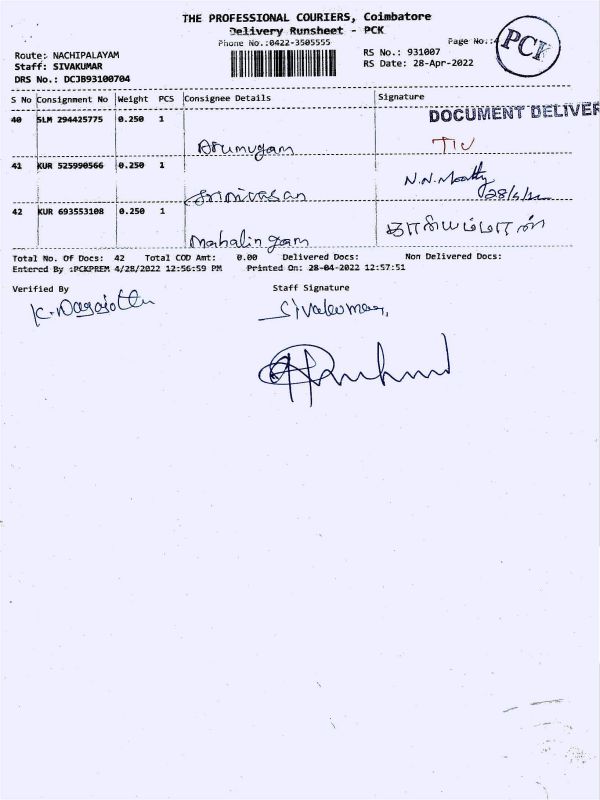 THE PROFESSIONAL COURIERS, Coimbatore
Delivery Runsheet - PCK
Phone No.:0422-3505555
Page No.:4
PCK
Route: NACHIPALAYAM
RS No.: 931007
Staff: SIVAKUMAR
RS Date: 28-Apr-2022
DRS No.: DCJB93100704
S No Consignment No Weight PCS Consignee Details Signature
DOCUMENT DELIVER
40 SLM 294425775 0.250 1
Arumugam
41 KUR 525990566 0.250 1
28/4/22
Srinivasan
42 KUR 693553108 0.250 1
Mahalingam
Total No. Of Docs: 42 Total COD Amt: 0.00 Delivered Docs: Non Delivered Docs:
Entered By :PCKPREM 4/28/2022 12:56:59 PM Printed On: 28-04-2022 12:57:51
Verified By Staff Signature
Sivakumar,